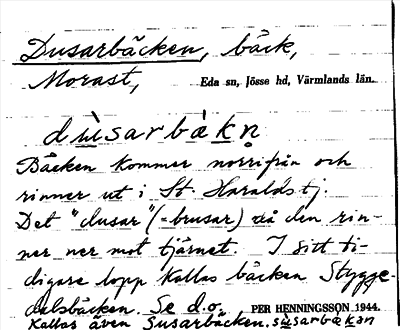 Dusarbäcken, bäck,
Morast, Eda sn, Jösse hd, Värmlands län.
dùsarbàkn̥
Bäcken kommer norrifrån och
rinner ut i St. Haraldstj.
Det "dusar" (=brusar) då den rin-
ner ner mot tjärnet. I sitt ti-
digare lopp kallas bäcken Stygge-
dalsbäcken. Se d.o. PER HENNINGSSON 1944.
Kallas även Susarbäcken. sùsarbàkan